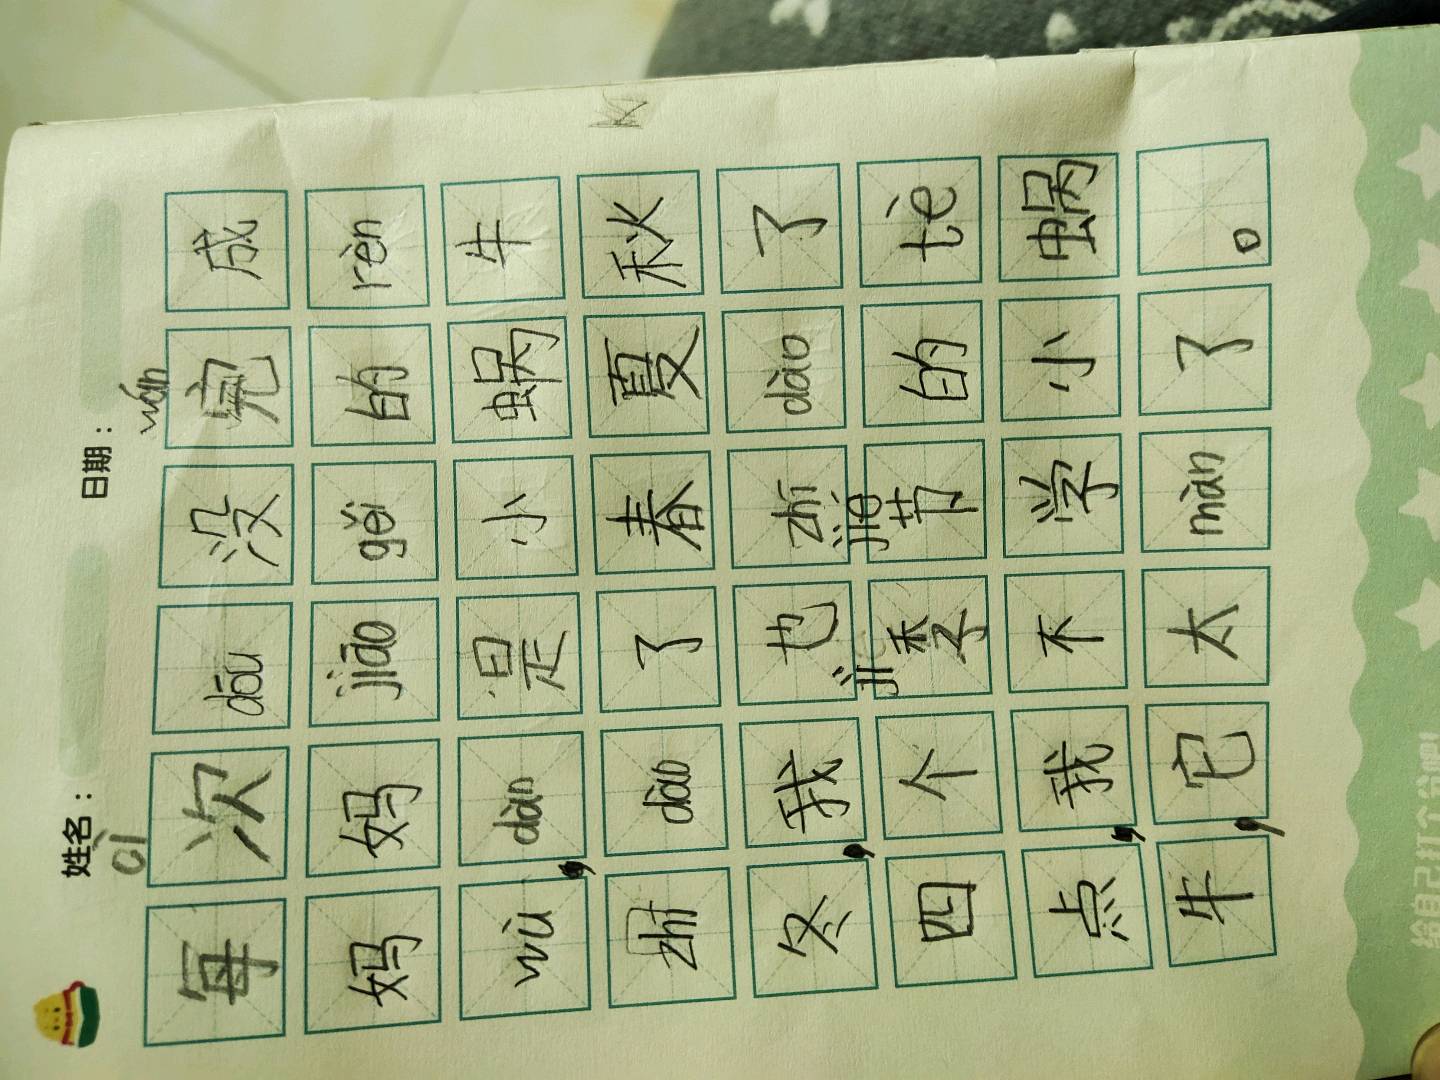 姓名： 日期：
cì wán
每次dōu没完成
妈妈jiāo gěi的rèn
wù，dàn是小蜗牛
zhī dào了春夏秋
冬，我也zhī dào了
jì jié
四个季节的tè
点，我不学小蜗
牛，它太màn了。
给自己打个分吧!